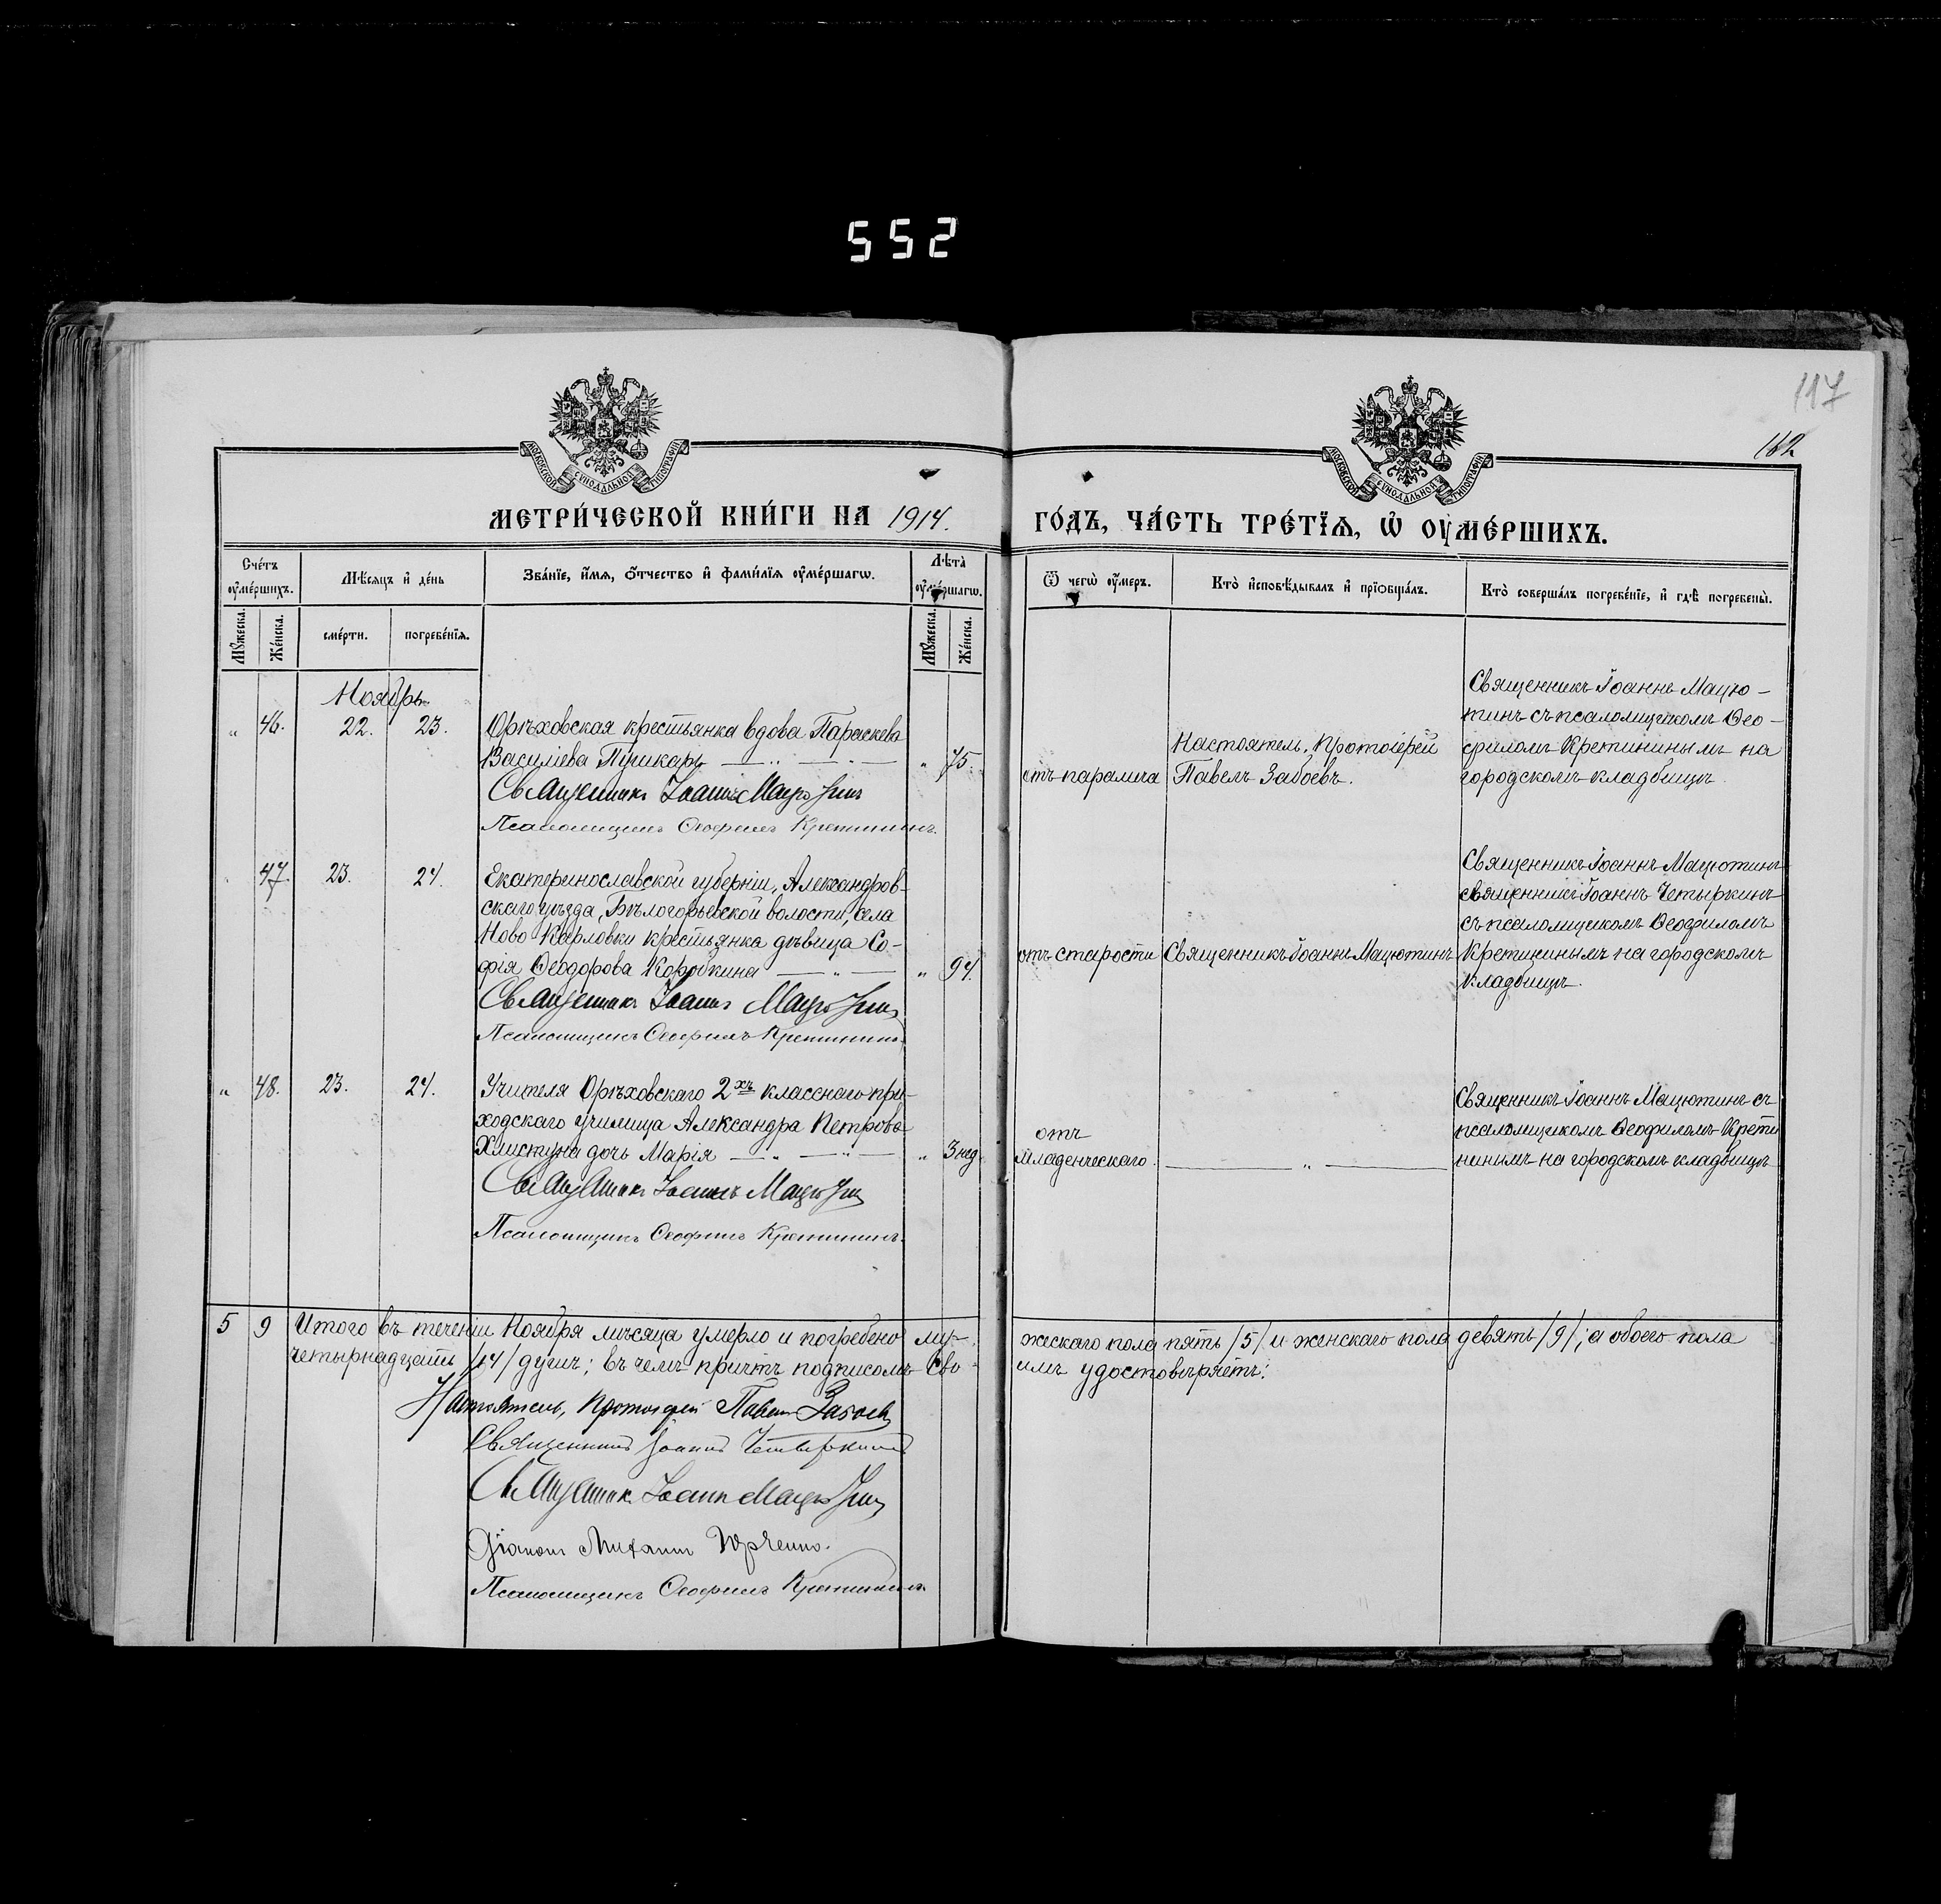 552
117
162
МОСКОВСКОЙ СѴНОДАЛЬНОЙ ТИПОГРАФІИ
МОСКОВСКОЙ СѴНОДАЛЬНОЙ ТИПОГРАФІИ
МЕТРИ́ЧЕСКОЙ КНИ́ГИ НА 1914.
ГО́ДЪ, ЧА́СТЬ ТРЕ́ТЇѦ, Ѽ ОУМЕ́РШИХЪ.
Сче́тъ оу҆ме́ршихъ.
Мѣ́сяцъ и҆ де́нь
Зва́нїе, и҆́мѧ, ѻ҆́тчество и҆ фами́лїѧ оу҆ме́ршагѡ.
Лѣ́та̀ оу҆ме́ршагѡ.
Ѿ чегѡ̀ оу҆́меръ.
Кто̀ и҆сповѣ́дывалъ и҆ прїѡбща́лъ.
Кто̀ соверша́лъ погребе́нїе, и҆ гдѣ̀ погребены̀.
Мꙋ́жеска.
Же́нска.
сме́рти.
погребе́нїѧ.
Мꙋ́жеска.
Же́нска.
Ноябрь.
" 46. 22. 23.
Орѣховская крестьянка вдова Параскева
Василіева Пушкарь — " — " — " 75.
Священникъ Іоаннъ Мацютинъ
Псаломщикъ Ѳеофилъ Кретининъ.
отъ паралича
Настоятель, Протоіерей
Павелъ Забоевъ.
Священникъ Іоаннъ Мацю-
тинъ съ псаломщикомъ Ѳео-
филомъ Кретининымъ на
городскомъ кладбищѣ.
" 47. 23. 24.
Екатеринославской губерніи, Александров-
скаго уѣзда, Бѣлогорьевской волости, села
Ново Карловки крестьянка дѣвица Со-
фія Ѳеодорова Коройкина — " — " 94.
Священникъ Іоаннъ Мацютинъ
Псаломщикъ Ѳеофилъ Кретининъ
отъ старости
Священникъ Іоаннъ Мацютинъ
Священникъ Іоаннъ Мацютинъ
священникъ Іоаннъ Четыркинъ
съ псаломщикомъ Ѳеофиломъ
Кретининымъ на городскомъ
кладбищѣ.
" 48. 23. 24.
Учителя Орѣховскаго 2хъ класснаго при-
ходскаго училища Александра Петрова
Хлистуна дочь Марія — " — " — " 3 нед.
Священникъ Іоаннъ Мацютинъ
Псаломщикъ Ѳеофилъ Кретининъ.
отъ
младенческаго.
— " —
Священникъ Іоаннъ Мацютинъ съ
псаломщикомъ Ѳеофиломъ Крети
нинымъ на городскомъ кладбищѣ
5 9 Итого въ теченіи Ноября мѣсяца умерло и погребено му-
жескаго пола пять /5/ и женскаго пола девять /9/; а обоего пола
четырнадцать /14/ душъ; въ чемъ причтъ подписомъ сво-
имъ удостовѣряетъ:
Настоятель, Протоіерей Павелъ Забоевъ
Священникъ Іоаннъ Четыркинъ
Священникъ Іоаннъ Мацютинъ
Діаконъ Михаилъ Юрченко.
Псаломщикъ Ѳеофилъ Кретининъ